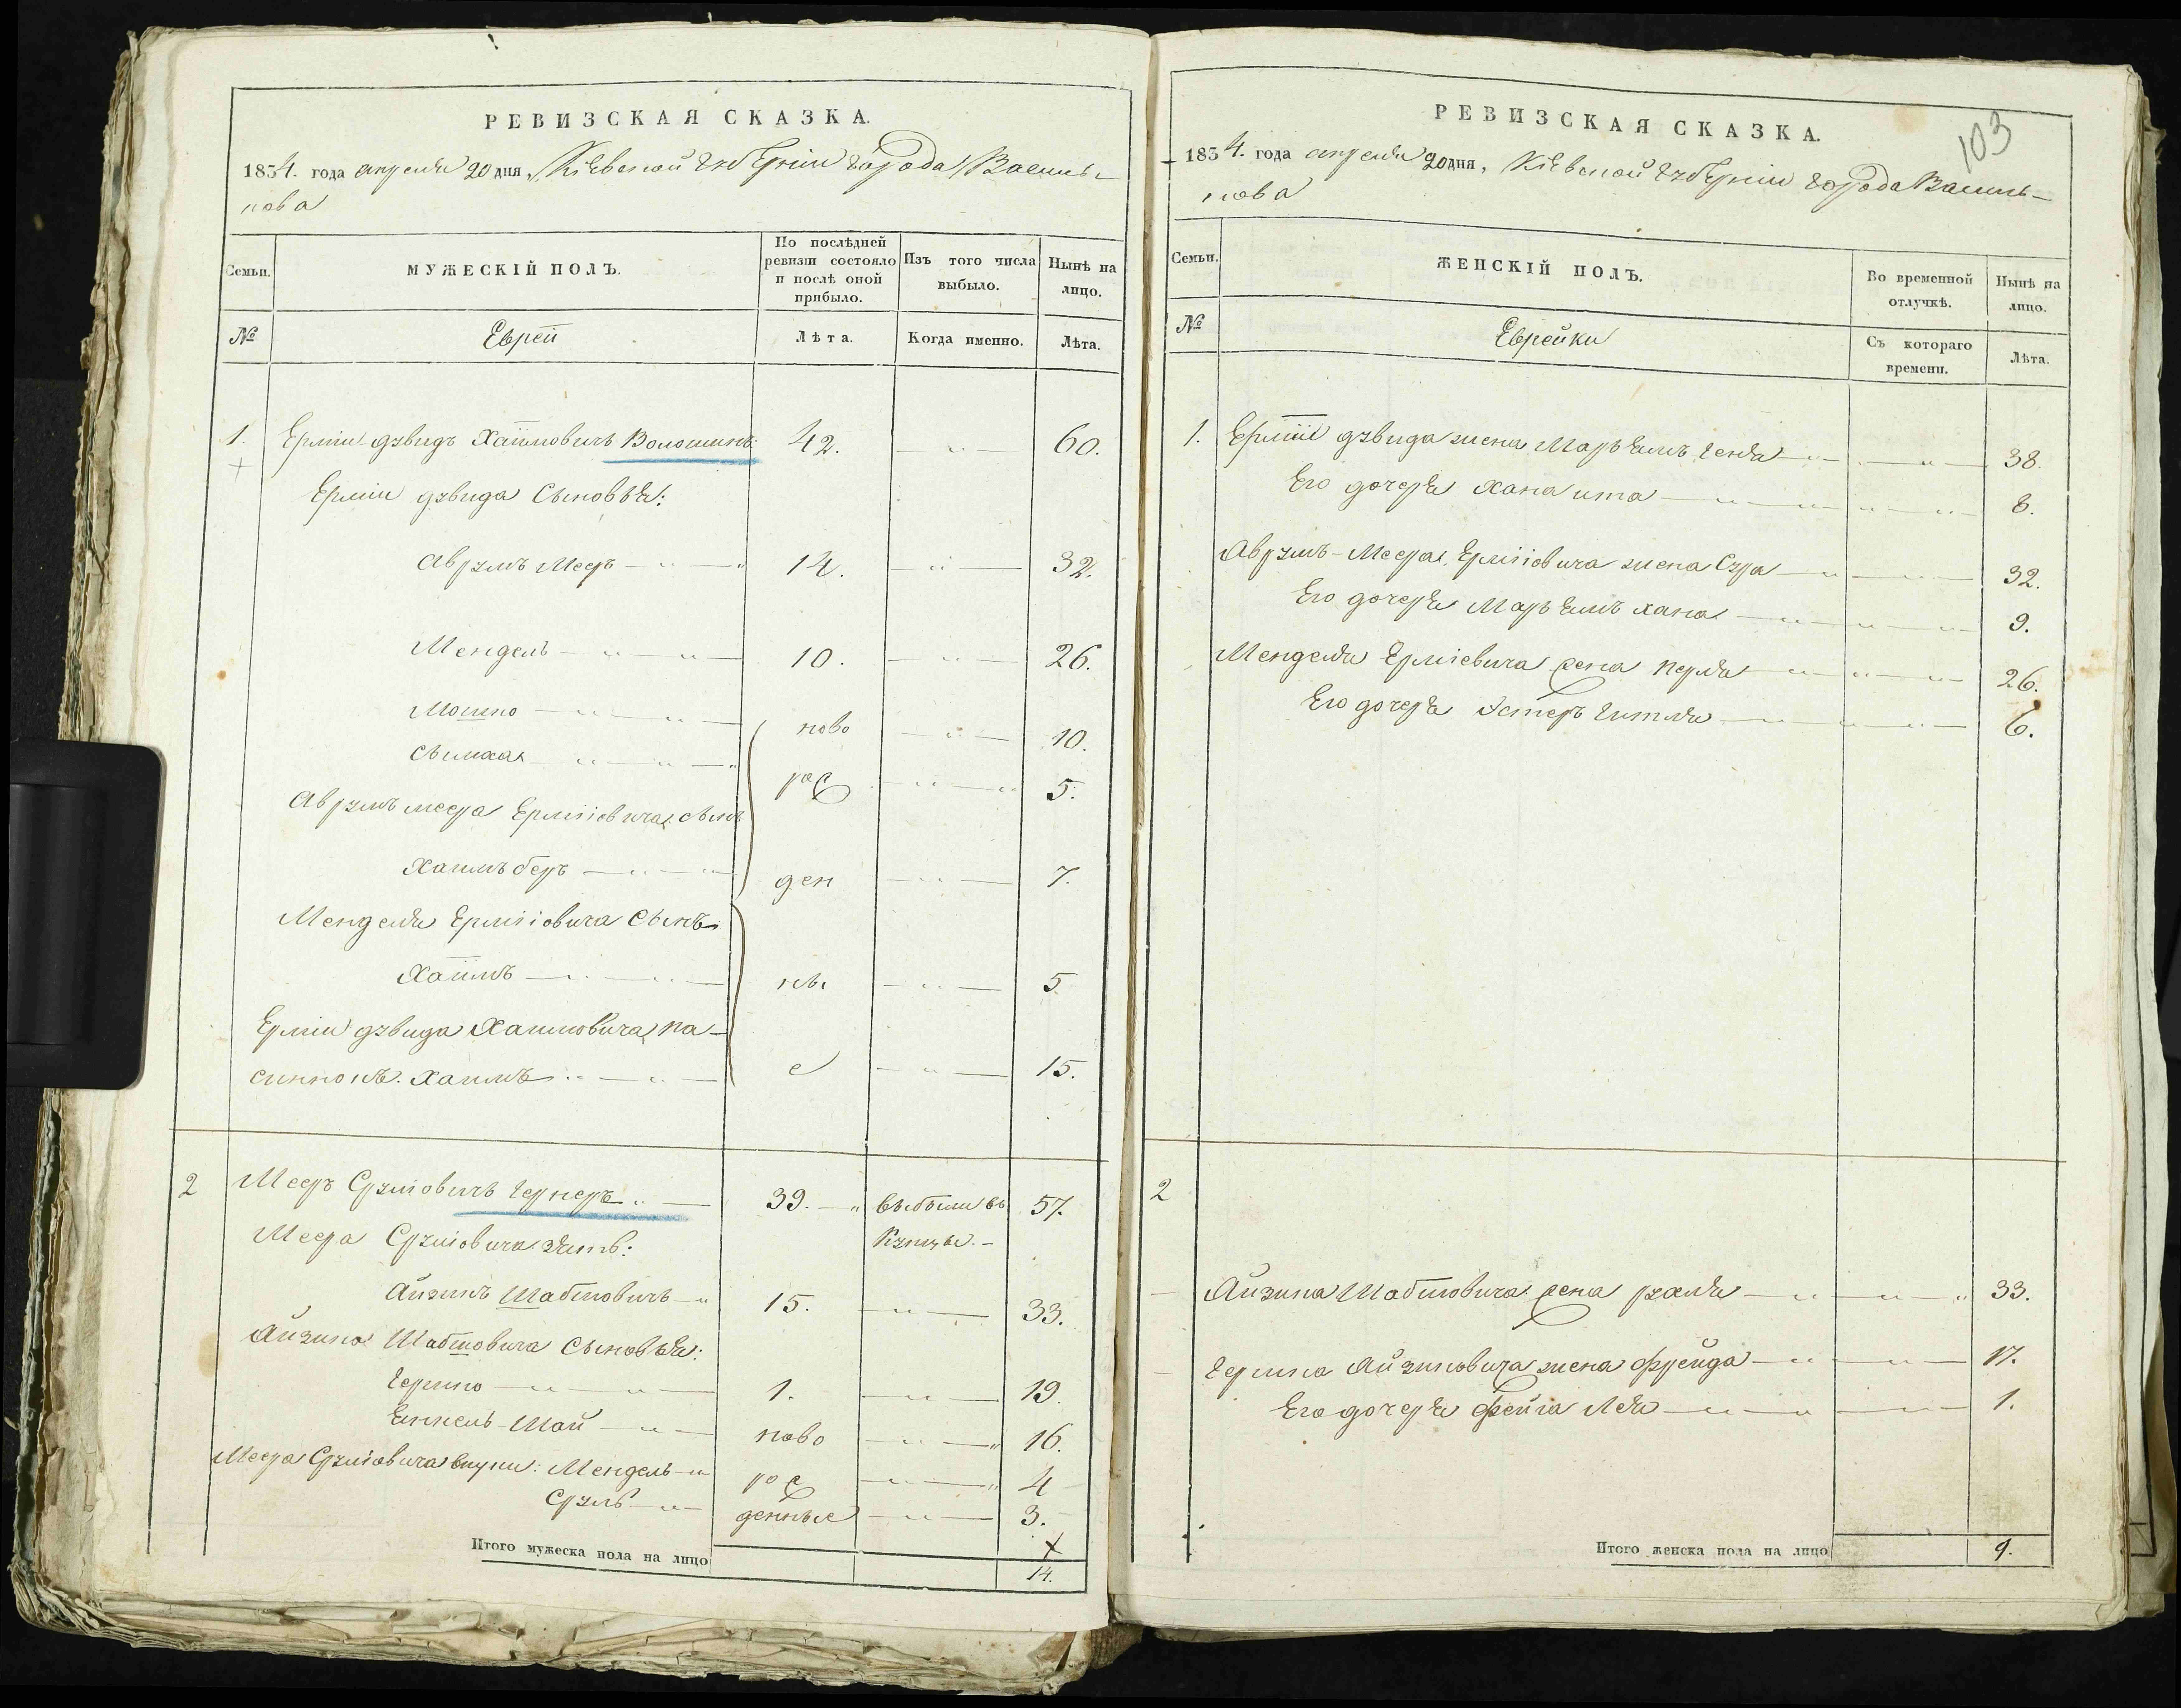 РЕВИЗСКАЯ СКАЗКА.
1854. года апреля 20 дня, Кіевской губерніи города Василь-
кова
Семьи.
МУЖЕСКІЙ ПОЛЪ.
По послѣдней ревизіи состояло и послѣ оной прибыло.
Изъ того числа выбыло.
Нынѣ на лицо.
№
Еврей
Лѣта.
Когда именно.
Лѣта.
1. Ерміи дувидъ Хаймовичъ Волошинъ 42. — " — 60.
Ерміи дувида Сыновья:
Аврумъ Меер — " — 14. — " — 32.
Мендель — " — " — 10. — " — 26.
Мошко — " — " — ново — " — 10.
Симха — " — " — рож — " — 5.
Аврумъ меера Ерміовича сынъ
Хаимъ беръ — " — ден — " — 7.
Менделя Ерміовича Сынъ
Хаимъ — " — " — ны — " — 5
Ерміи дувида Хаимовича па-
сынокъ. Хаимъ — " — е — " — 15.
2 Мееръ Срулiовичъ Чернеръ " — 39. — " выбыли въ 57.
Купцы. —
Меера Срулiовича зять:
Айзикъ Шабшовичъ — " 15. — " — 33.
Айзика Шабшовича Сыновья:
Гершко — " — " — 1. — " — 19.
Енкель-Шай — " — ново — " — " 16.
Меера Срулiовича внуки: Мендель — " рож — " — " 4
Сруль — " — денные — " — 3.
Итого мужеска пола на лицо 14.
РЕВИЗСКАЯ СКАЗКА.
103
1854. года апреля 20 дня, Кіевской губерніи города Василь-
кова
Семьи.
ЖЕНСКІЙ ПОЛЪ.
Во временной отлучкѣ.
Нынѣ на лицо.
№
Еврейки
Съ котораго времени.
Лѣта.
1. Ерміи дувида жена Марьемъ геня — " — " — 38.
Его дочеря Хана ита — " — " — 8.
Аврумъ-Меера Ерміовича жена Сура — " — " — 32.
Его дочеря Марьемъ хана — " — " — 9.
Менделя Ерміевича жена перля — " — " — 26.
Его дочеря Эстеръ гитля — " — " — 6.
2
Айзика Шабшовича жена рухля — " — " — " 33.
Гершка Айзиковича жена фрейда — " — " — 17.
Его дочеря фейга Лея — " — " — 1.
Итого женска пола на лицо 9.